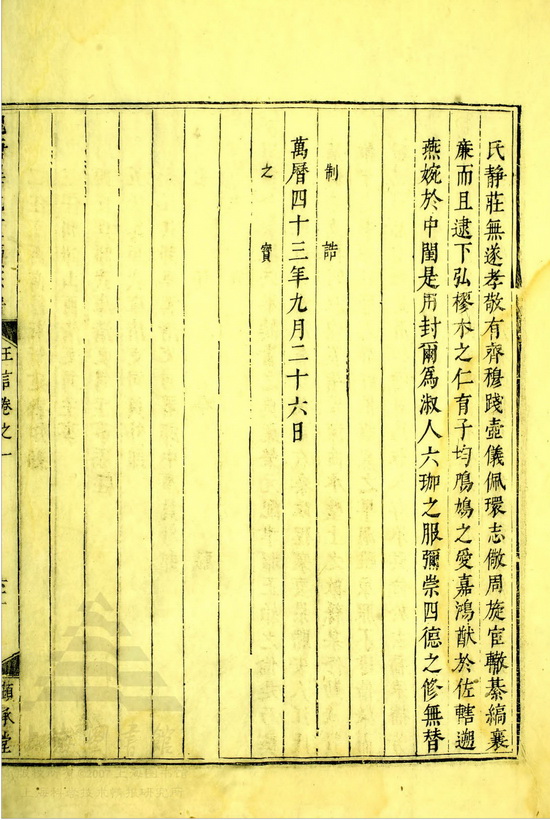 氏静莊無遂孝敬有齊穆踐壺儀佩環志儆周旋宦轍綦縞襄
廉而且逮下弘樛木之仁育子均鳲鳩之愛嘉鴻猷於佐轄遡
燕婉於中閨是用封爾為淑人六珈之服彌崇四德之修無替
制誥
萬曆四十三年九月二十六日
之寶
王言卷之一
顯承堂